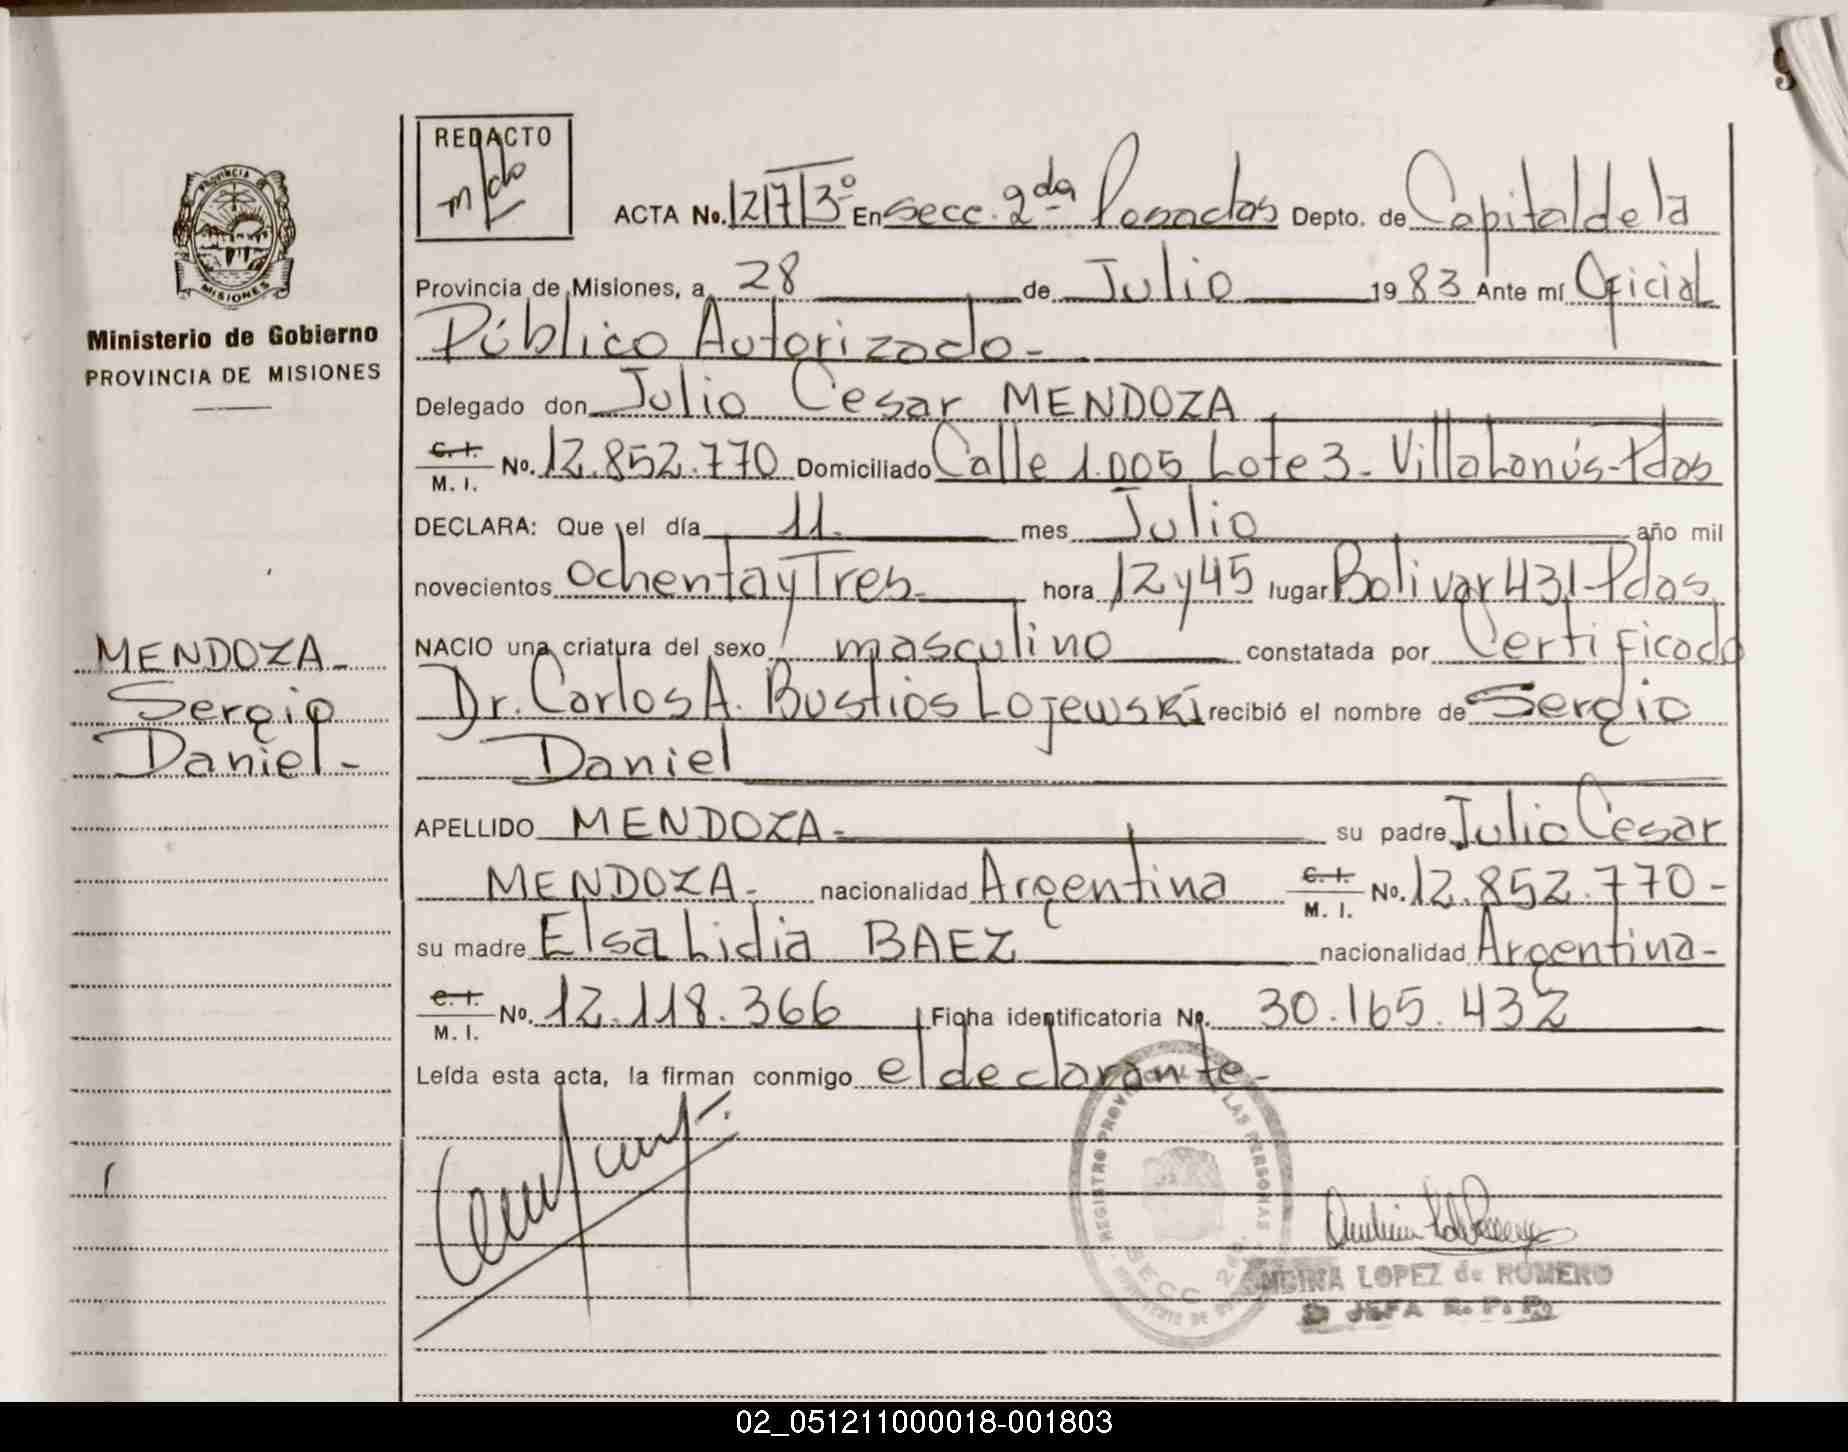 9
REDACTO
PROVINCIA
MISIONES
Ministerio de Gobierno
PROVINCIA DE MISIONES
ACTA No. 1273º En Secc. 2da Posadas Depto. de Capital de la
Provincia de Misiones, a 28 de Julio 1983 Ante mí Oficial
Público Autorizado-
Delegado don Julio Cesar MENDOZA
C. I.
M. I. No. 12.852.770 Domiciliado Calle 1.005 Lote 3- Villa Lanús-Pdas
DECLARA: Que el día 11. mes Julio año mil
novecientos ochenta y Tres- hora 12 y 45 lugar Bolivar 431-Pdas,
NACIO una criatura del sexo masculino constatada por Certificado
Dr. Carlos A. Bustios Lojewski recibió el nombre de Sergio
Daniel
MENDOZA-
Sergio
Daniel-
APELLIDO MENDOZA- su padre Julio Cesar
MENDOZA- nacionalidad Argentina C. I.
M. I. No. 12.852.770-
su madre Elsa Lidia BAEZ nacionalidad Argentina-
C. I.
M. I. No. 12.118.366 Ficha identificatoria No. 30.165.432
Leída esta acta, la firman conmigo el declarante-
REGISTRO PROVINCIAL DE LAS PERSONAS
SECC 2da
LOPEZ de ROMERO
JEFA R. P. P.
02_051211000018-001803